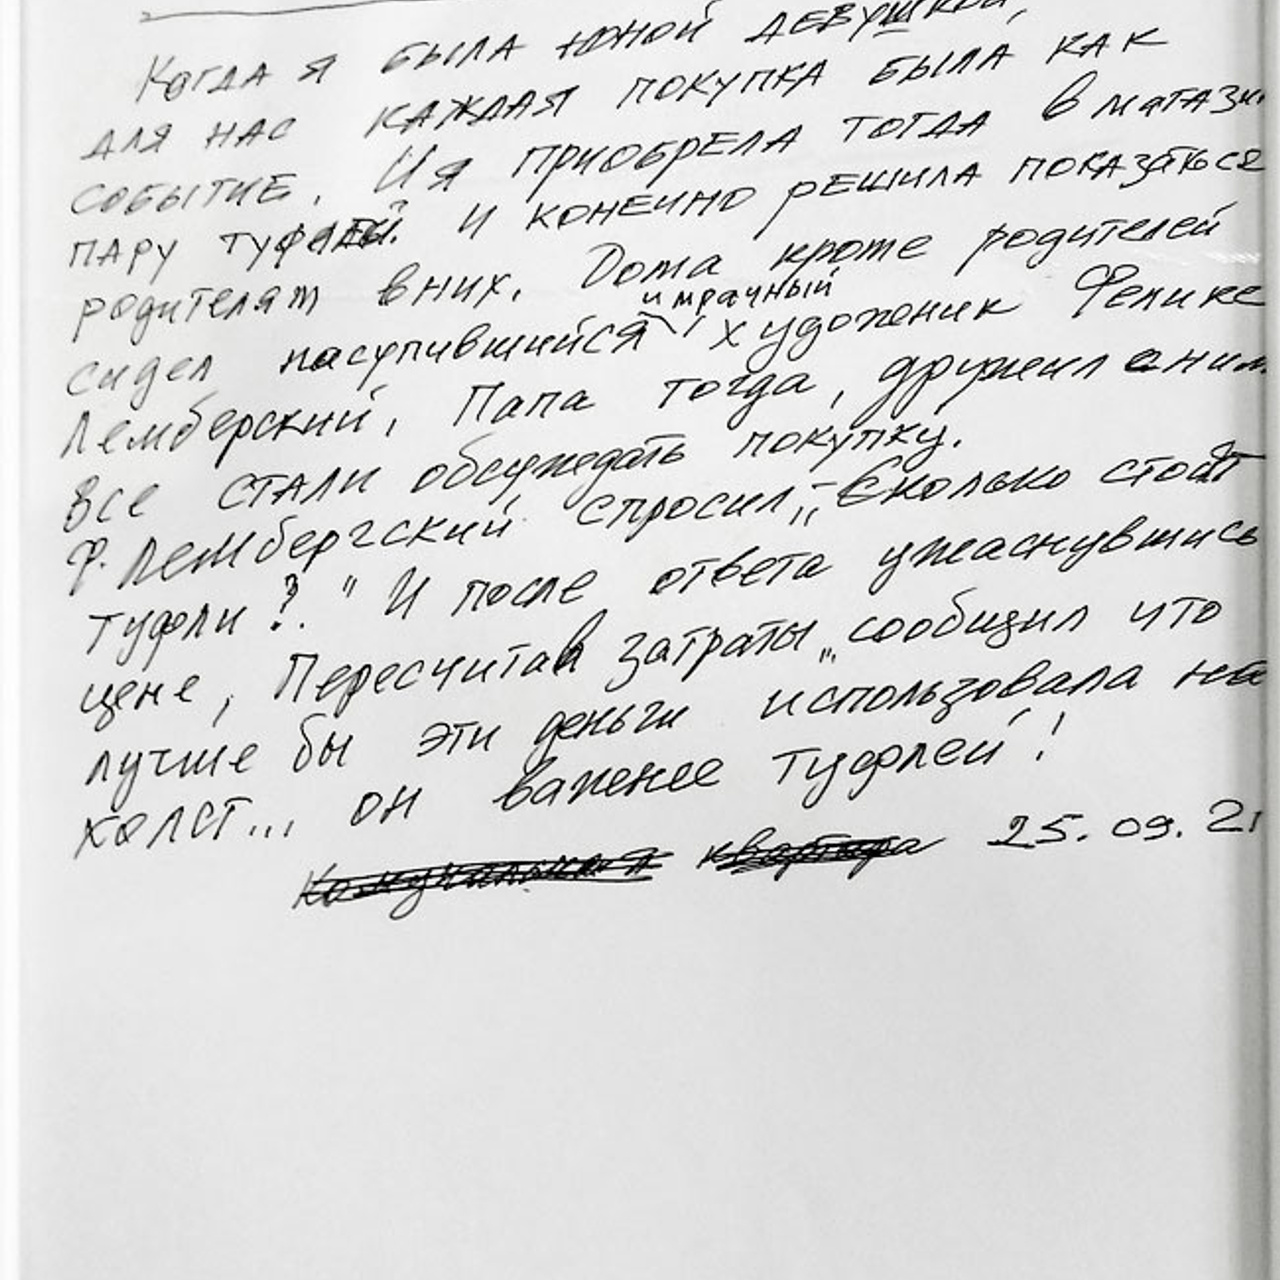 Когда я была юной девушкой,
для нас каждая покупка была как
событие. И я приобрела тогда в магази
пару туфлей. И конечно решила показаться
родителям в них. Дома кроме родителей
и мрачный
сидел насупившийся художник Феликс
Лемберский, Папа тогда, дружил с ним
все стали обсуждать покупку.
Ф. Лембергский спросил „Сколько стоят
туфли?." И после ответа ужаснувшись
цене, Пересчитав затраты „ сообщил что
лучше бы эти деньги использовала на
холст... он важнее туфлей!
Комунальная квартира 25.09.21